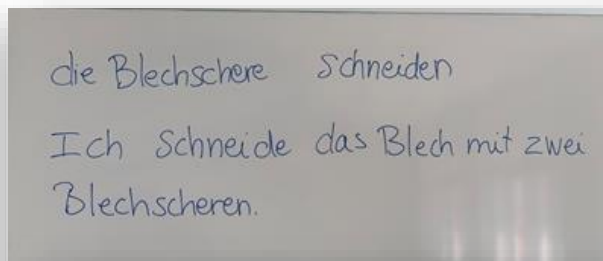 die Blechschere schneiden
Ich schneide das Blech mit zwei
Blechscheren.